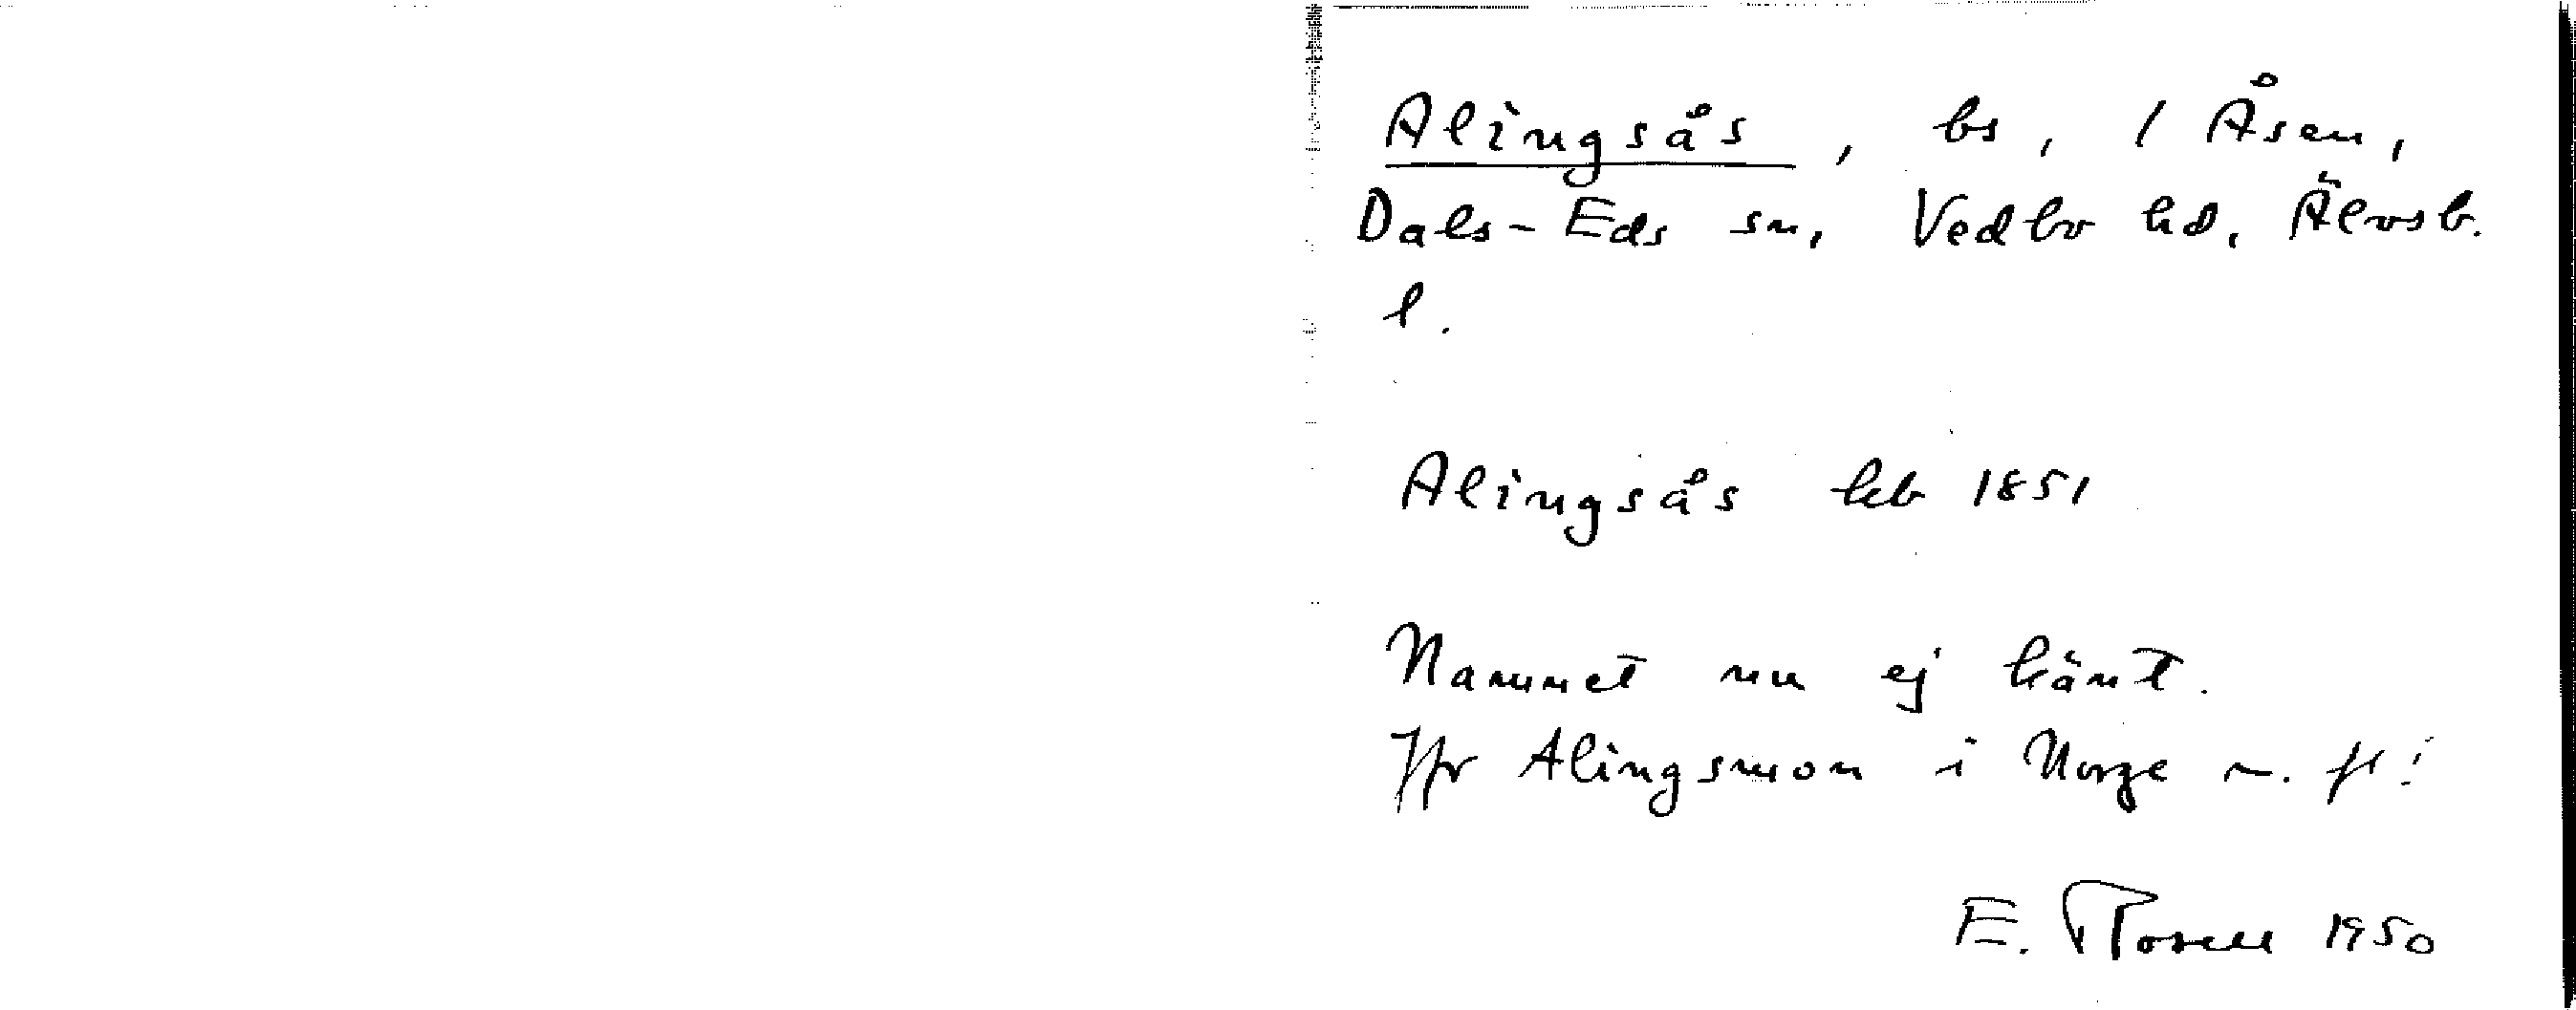 Alingsås, bs, / Åsen,
Dals-Eds sn, Vedbo hd, Älvsb.
l.
Alingsås kb 1851
Namnet nu ej känt.
Jfr Alingsmon i Norge m. fl!
E. Rosell 1950